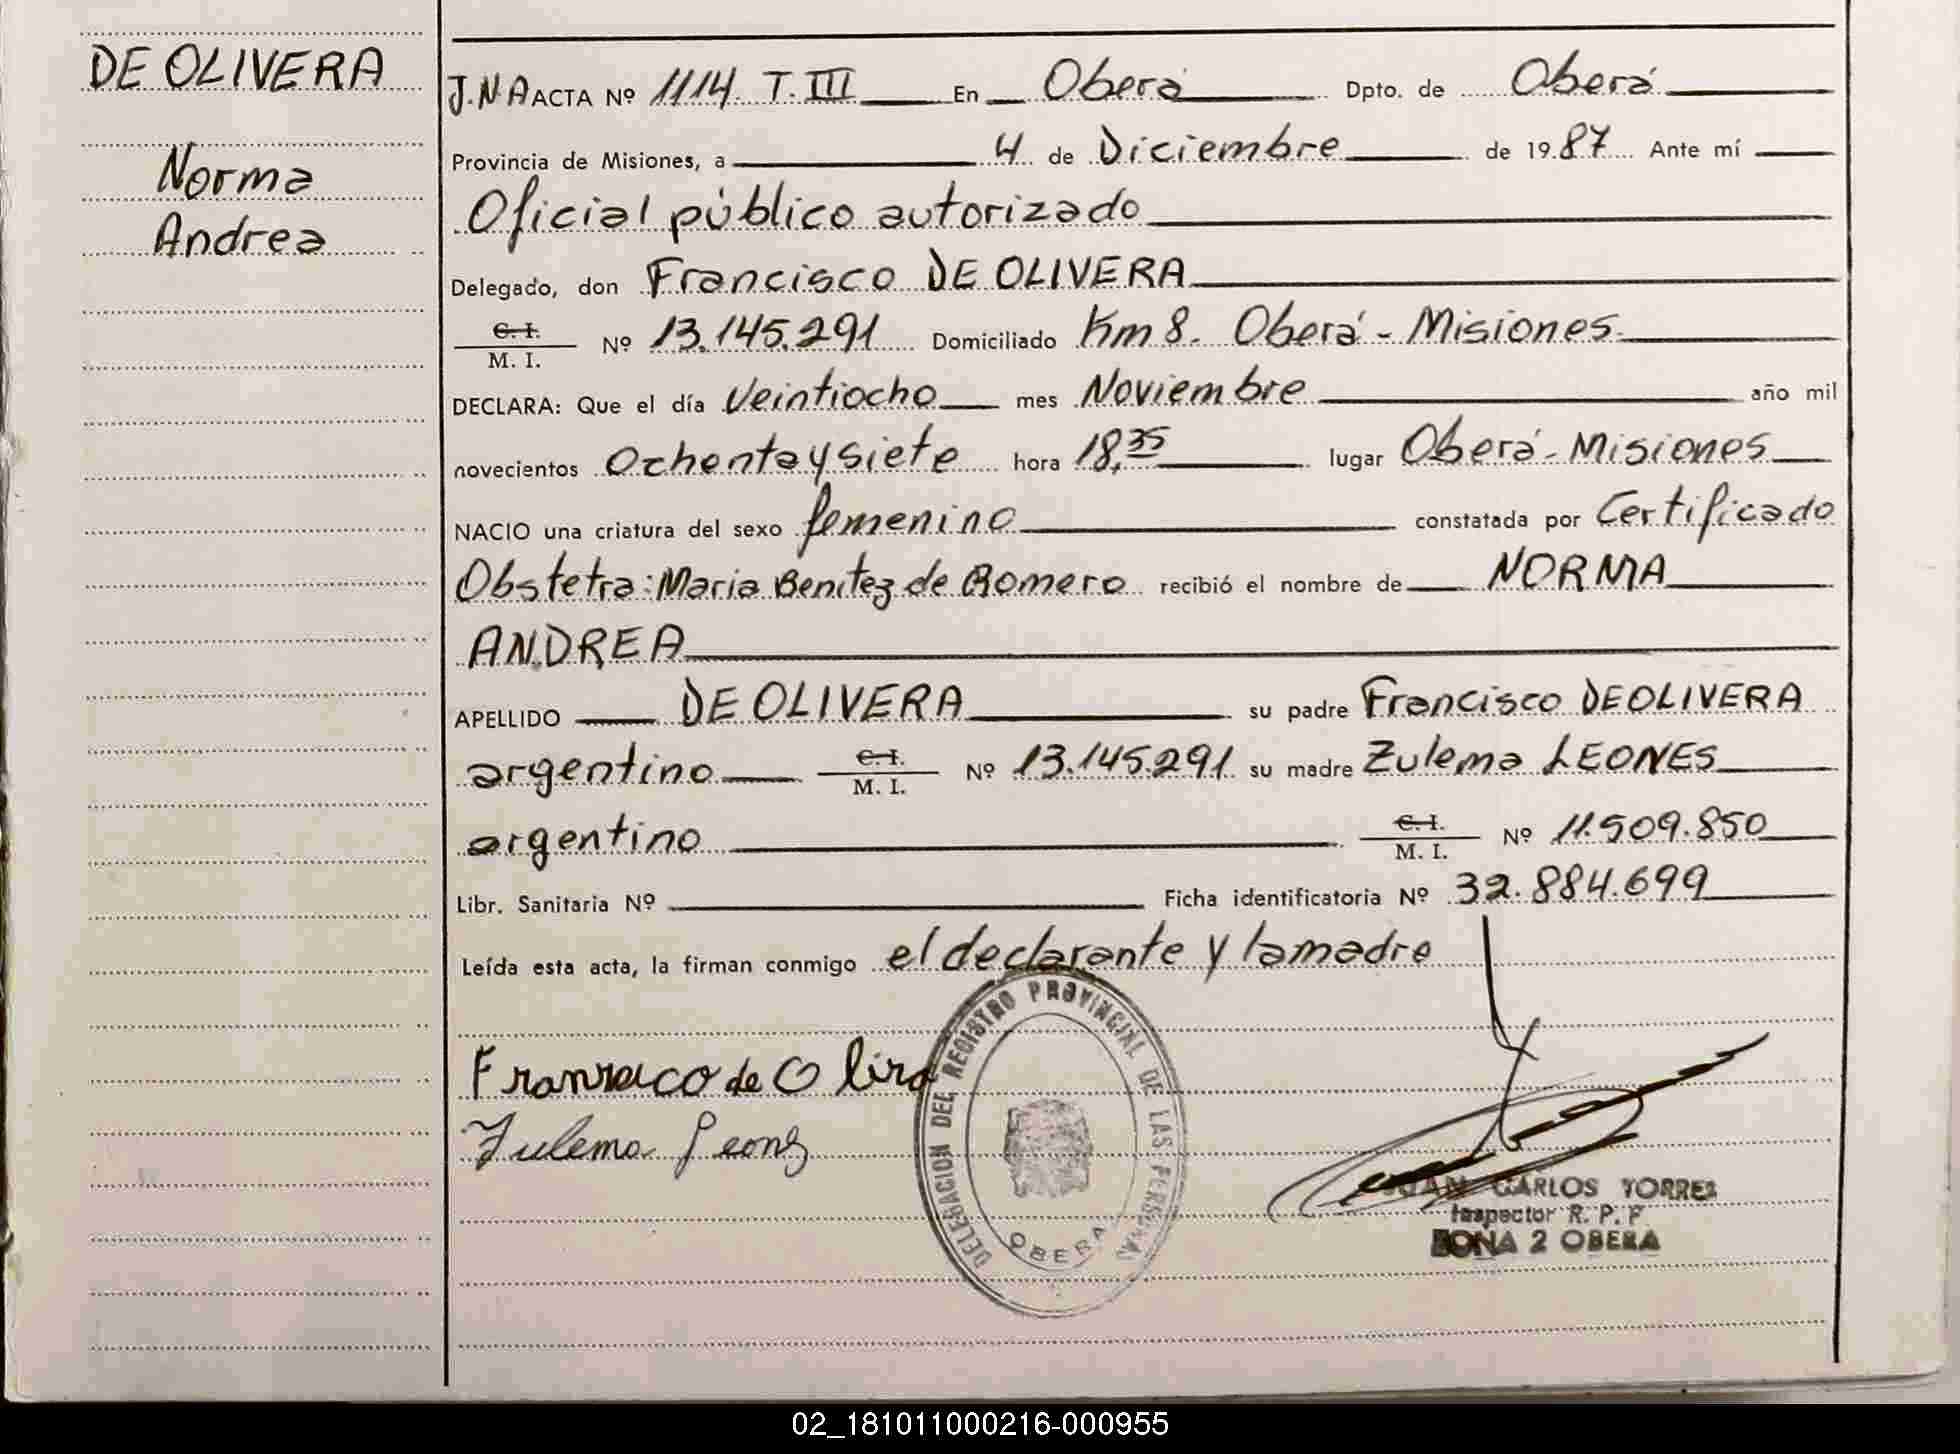 DE OLIVERA
Norma
Andrea
J.N.A ACTA Nº 1114 T. III En Oberá Dpto. de Oberá
Provincia de Misiones, a 4 de Diciembre de 1987 Ante mí
Oficial público autorizado
Delegado, don Francisco DE OLIVERA
C. I.
M. I. Nº 13.145.291 Domiciliado Km 8. Oberá - Misiones
DECLARA: Que el día Veintiocho mes Noviembre año mil
novecientos Ochenta y siete hora 18,35 lugar Oberá - Misiones
NACIO una criatura del sexo femenino constatada por Certificado
Obstetra: Maria Benitez de Romero recibió el nombre de NORMA
ANDREA
APELLIDO DE OLIVERA su padre Francisco DE OLIVERA
argentino C. I. M. I. Nº 13.145.291 su madre Zulema LEONES
argentino C. I. M. I. Nº 11.509.850
Libr. Sanitaria Nº Ficha identificatoria Nº 32.884.699
Leída esta acta, la firman conmigo el declarante y la madre
DELEGACION DEL REGISTRO PROVINCIAL DE LAS PERSONAS
OBERA
de O
Zulema
JUAN CARLOS TORRES
Inspector R. P. P.
ZONA 2 OBERA
02_181011000216-000955